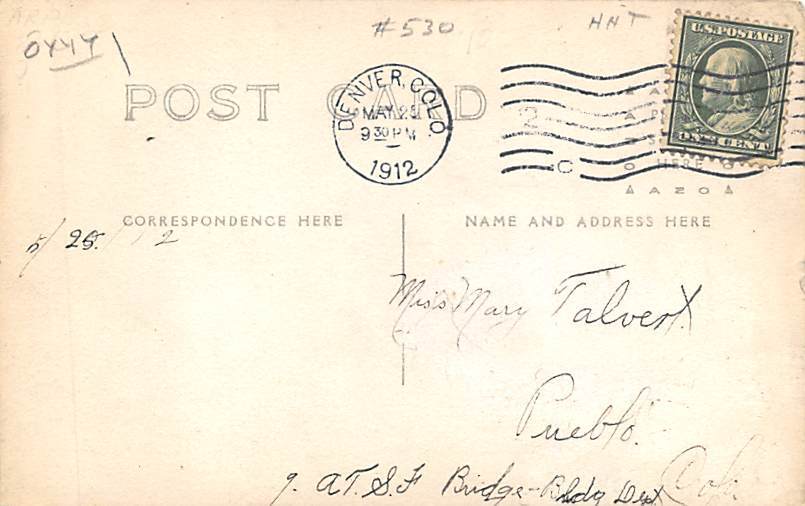 OYYY
#530
HNT
POST CARD
DENVER, COLO.
MAY 25
9 30 PM
1912
U.S. POSTAGE
ONE CENT
C
HERE
AZO
CORRESPONDENCE HERE
NAME AND ADDRESS HERE
5/25/12
Miss Mary Talvert
Pueblo.
Colo
A.T.S.F Bridge-Bldg Dept